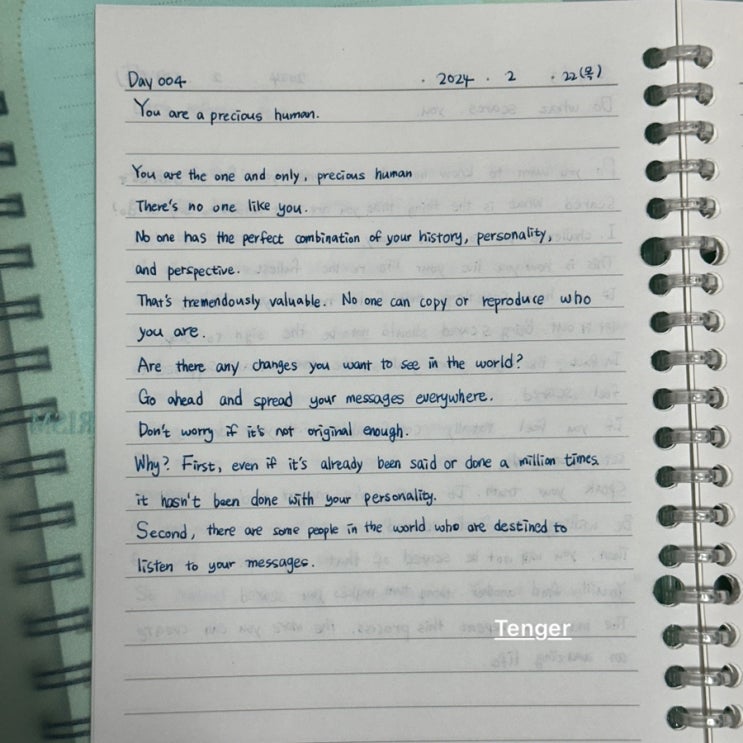 Day 004 . 2024 . 2 . 22(목)
You are a precious human.
You are the one and only, precious human
There's no one like you.
No one has the perfect combination of your history, personality,
and perspective.
That's tremendously valuable. No one can copy or reproduce who
you are.
Are there any changes you want to see in the world?
Go ahead and spread your messages everywhere.
Don't worry if it's not original enough.
Why? First, even if it's already been said or done a million times.
it hasn't been done with your personality.
Second, there are some people in the world who are destined to
listen to your messages.
Tenger